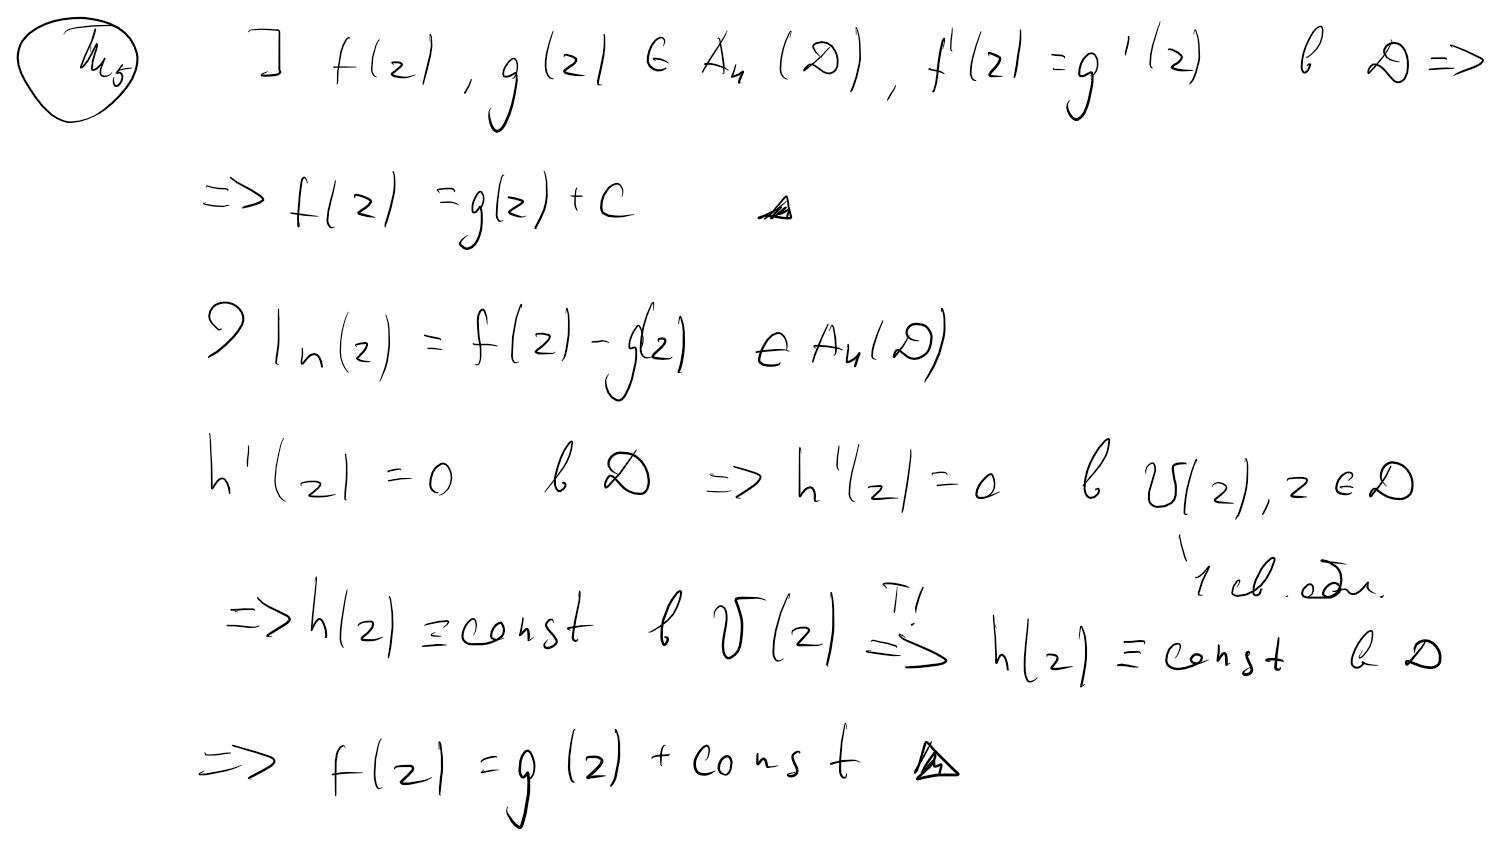 Th5 ] f(z), g(z) ∈ Aн(D), f'(z) = g'(z) в D =>
=> f(z) = g(z) + C ▲
Э ln(z) = f(z) - g(z) ∈ Aн(D)
h'(z) = 0 в D => h'(z) = 0 в U(z), z ∈ D
1 св. обл.
=> h(z) ≡ const в U(z) T! => h(z) ≡ const в D
=> f(z) = g(z) + const ▲